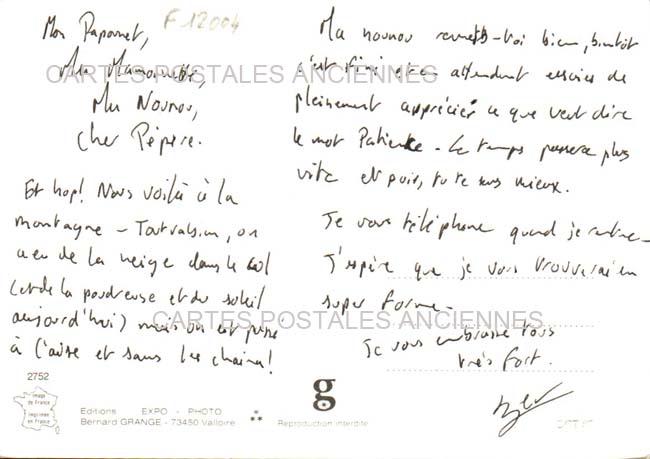 F 12004
Mon Papounet,
Ma Mamounette,
Ma Nounou,
Cher Pépère.
Et hop! Nous voilà à la
montagne - Tout va bien, on
a eu de la neige dans le col
(et de la poudreuse et du soleil
aujourd'hui) mais on est passé
à l'aise et sans les chaines!
Ma nounou remets-toi bien, bientôt
c'est fini et en attendant essaies de
pleinement apprécier ce que veut dire
le mot Patience - Le temps passera plus
vite et puis, tu te sens mieux.
Je vous téléphone quand je rentre -
J'espère que je vous trouverai en
super forme -
Je vous embrasse tous
très fort.
CARTES POSTALES ANCIENNES
CARTES POSTALES ANCIENNES
2752
image
de France
imprimée
en France
Editions EXPO - PHOTO
Bernard GRANGE - 73450 Valloire
g
Reproduction interdite